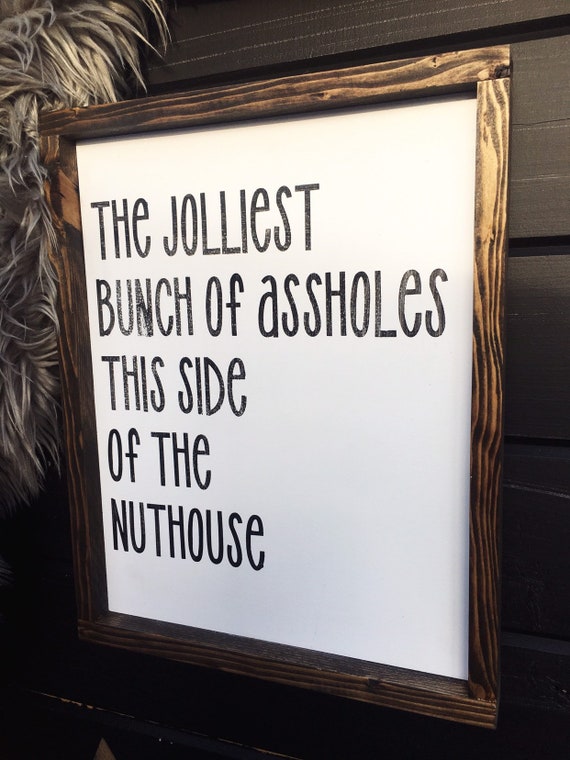 THE JOLLIEST
BUNCH OF ASSHOLES
THIS SIDE
OF THE
NUTHOUSE